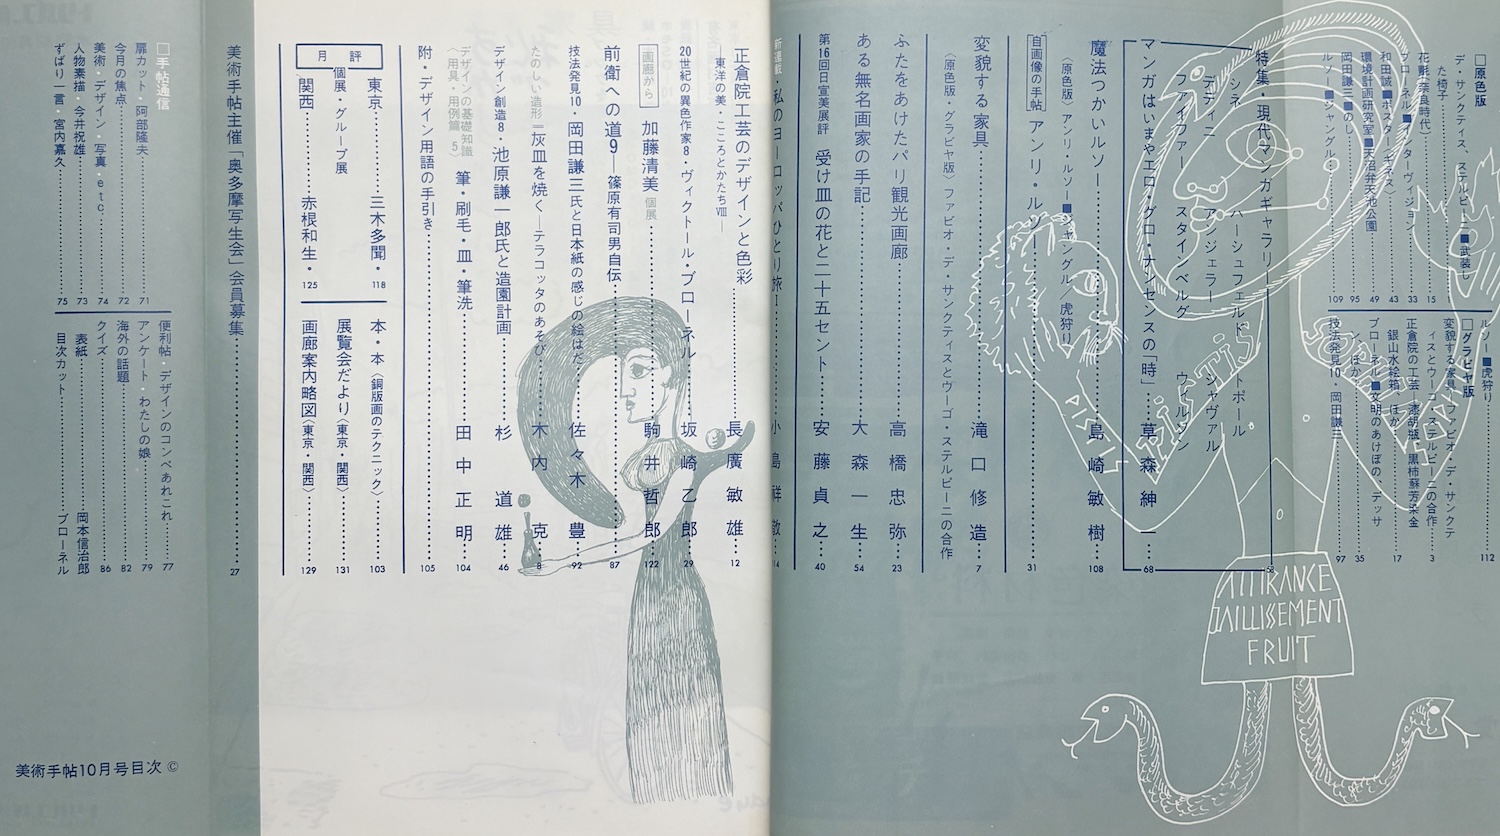 □原色版
デ・サンクティス、ステルビーニ■武装し
た椅子
花氈(奈良時代)
ブローネル■インターヴィジョン
和田誠■ポスター(ギネス)
環境計画研究室■天沼弁天池公園
岡田謙三■のし
ルソー■ジャングル
15
33
43
49
95
109
ルソー■虎狩り
112
□グラビヤ版
変貌する家具 ファビオ・デ・サンクテ
ィスとウーゴ・ステルビーニの合作
3
正倉院の工芸―漆胡瓶・黒柿蘇芳染金
銀山水絵箱、ほか
17
ブローネル■文明のあけぼの、デッサ
ン、ほか
35
技法発見10・岡田謙三
97
特集・現代マンガギャラリー
58
シネ ハーシュフェルド トポール
デディニ アンジェラー シャヴァル
ファイファー スタインベルグ ウィルソン
マンガはいまやエロ・グロ・ナンセンスの「時」 草森紳一 68
魔法つかいルソー 島崎敏樹 108
〈原色版〉アンリ・ルソー■ジャングル/虎狩り
自画像の手帖 アンリ・ルソー 31
変貌する家具 滝口修造 7
〈原色版・グラビヤ版〉ファビオ・デ・サンクティスとウーゴ・ステルビーニの合作
ふたをあけたパリ観光画廊 高橋忠弥 23
ある無名画家の手記 大森一生 54
第16回日宣美展評 受け皿の花と二十五セント 安藤貞之 40
新連載 私のヨーロッパひとり旅Ⅰ 小島祥敦 14
正倉院工芸のデザインと色彩 長廣敏雄 12
―東洋の美・こころとかたちⅧ―
20世紀の異色作家8・ヴィクトール・ブローネル 坂崎乙郎 29
画廊から 加藤清美 個展 駒井哲郎 122
前衛への道9―篠原有司男自伝 87
技法発見10・岡田謙三氏と日本紙の感じの絵はだ 佐々木豊 92
たのしい造形=灰皿を焼く―テラコッタのあそび 木内克 8
デザイン創造8・池原謙一郎氏と造園計画 杉道雄 46
デザインの基礎知識
〈用具・用例篇 5〉 筆・刷毛・皿・筆洗 田中正明 104
附・デザイン用語の手引き 105
月評
東京 三木多聞・118
個展・グループ展
関西 赤根和生・125
本・本〈銅版画のテクニック〉 103
展覧会だより〈東京・関西〉 131
画廊案内略図〈東京・関西〉 129
美術手帖主催「奥多摩写生会」会員募集 27
□手帖通信
扉カット・阿部隆夫 71
今月の焦点 72
美術・デザイン・写真・etc. 74
人物素描・今井祝雄 73
ずばり一言・宮内嘉久 75
便利帖・デザインのコンペあれこれ 77
アンケート・わたしの娘 79
海外の話題 82
クイズ 86
表紙 岡本信治郎
目次カット ブローネル
美術手帖10月号目次 ©
ATTIRANCE
JAILLISSEMENT
FRUIT